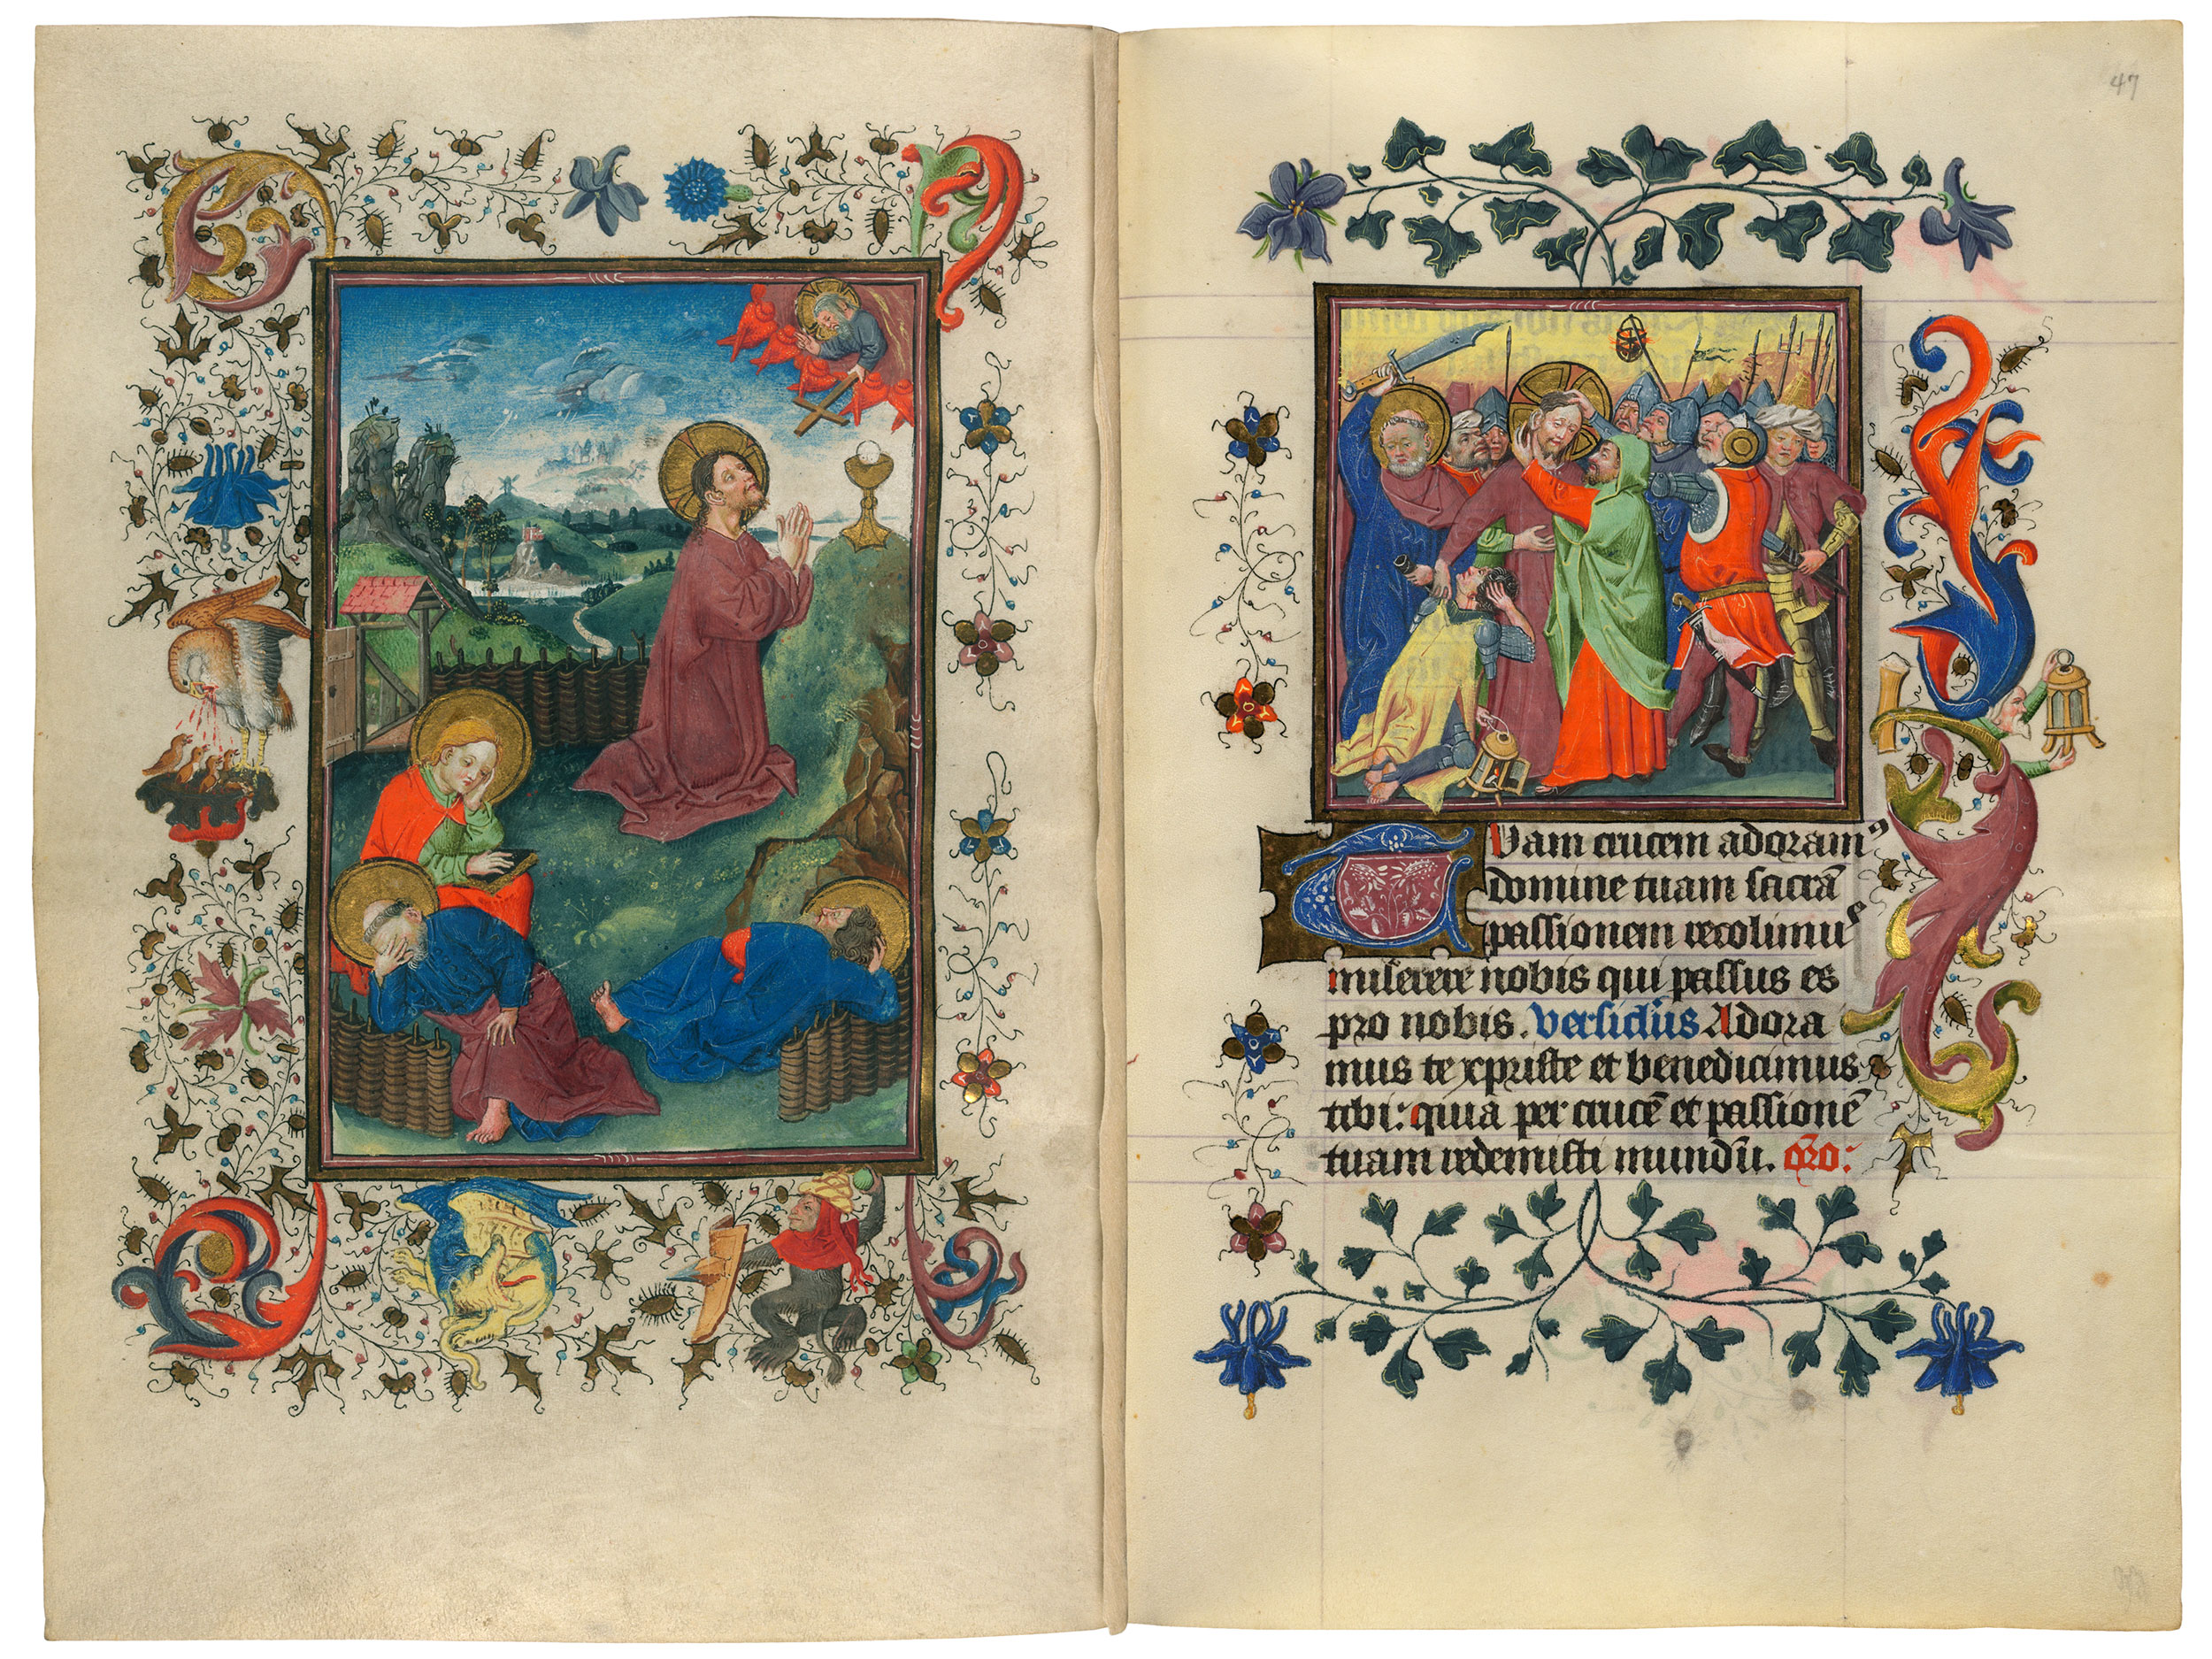 47
Tuam crucem adoram⁹
domine tuam sacrā
passionem recolimuˢ
miserere nobis qui passus es
pro nobis. versiclus Adora
mus te xpriste et benedicimus
tibi: quia per crucē et passionē
tuam redemisti mundū. oro: